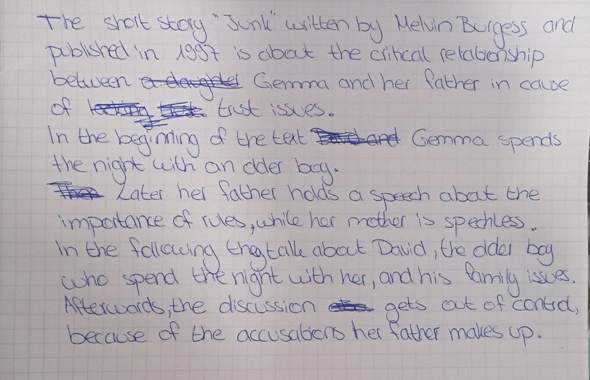 The short story "Junk" written by Melvin Burgess and
published in 1997 is about the critical relationship
between a daughter Gemma and her father in cause
of trust issues.
In the beginning of the text Gemma spends
the night with an older boy.
Later her father holds a speech about the
importance of rules, while her mother is spechless.
In the following they talk about David, the older boy
who spend the night with her, and his family issues.
Afterwards, the discussion gets out of control,
because of the accusations her father makes up.